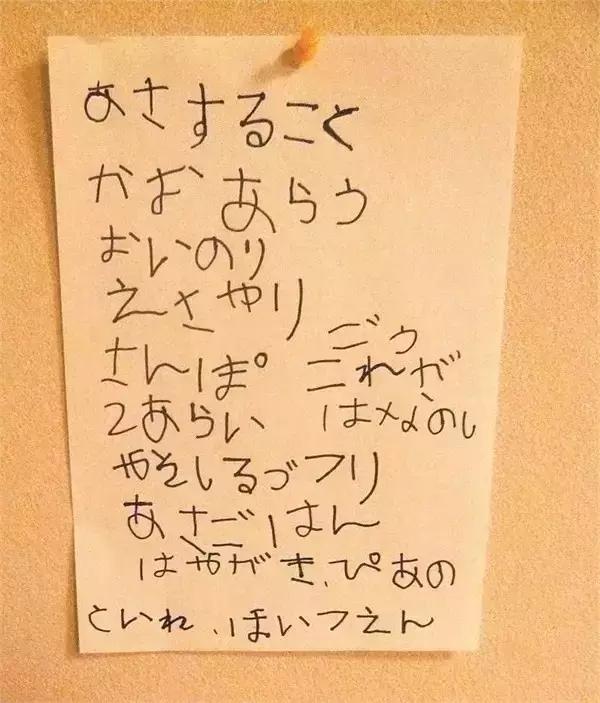 あさすること
かお あらう
おいのり
えさやり
さんぽ
てあらい
これが
はなのし
ごと
みそしるづくり
あさごはん
はやがき、ぴあの
といれ、ほいくえん